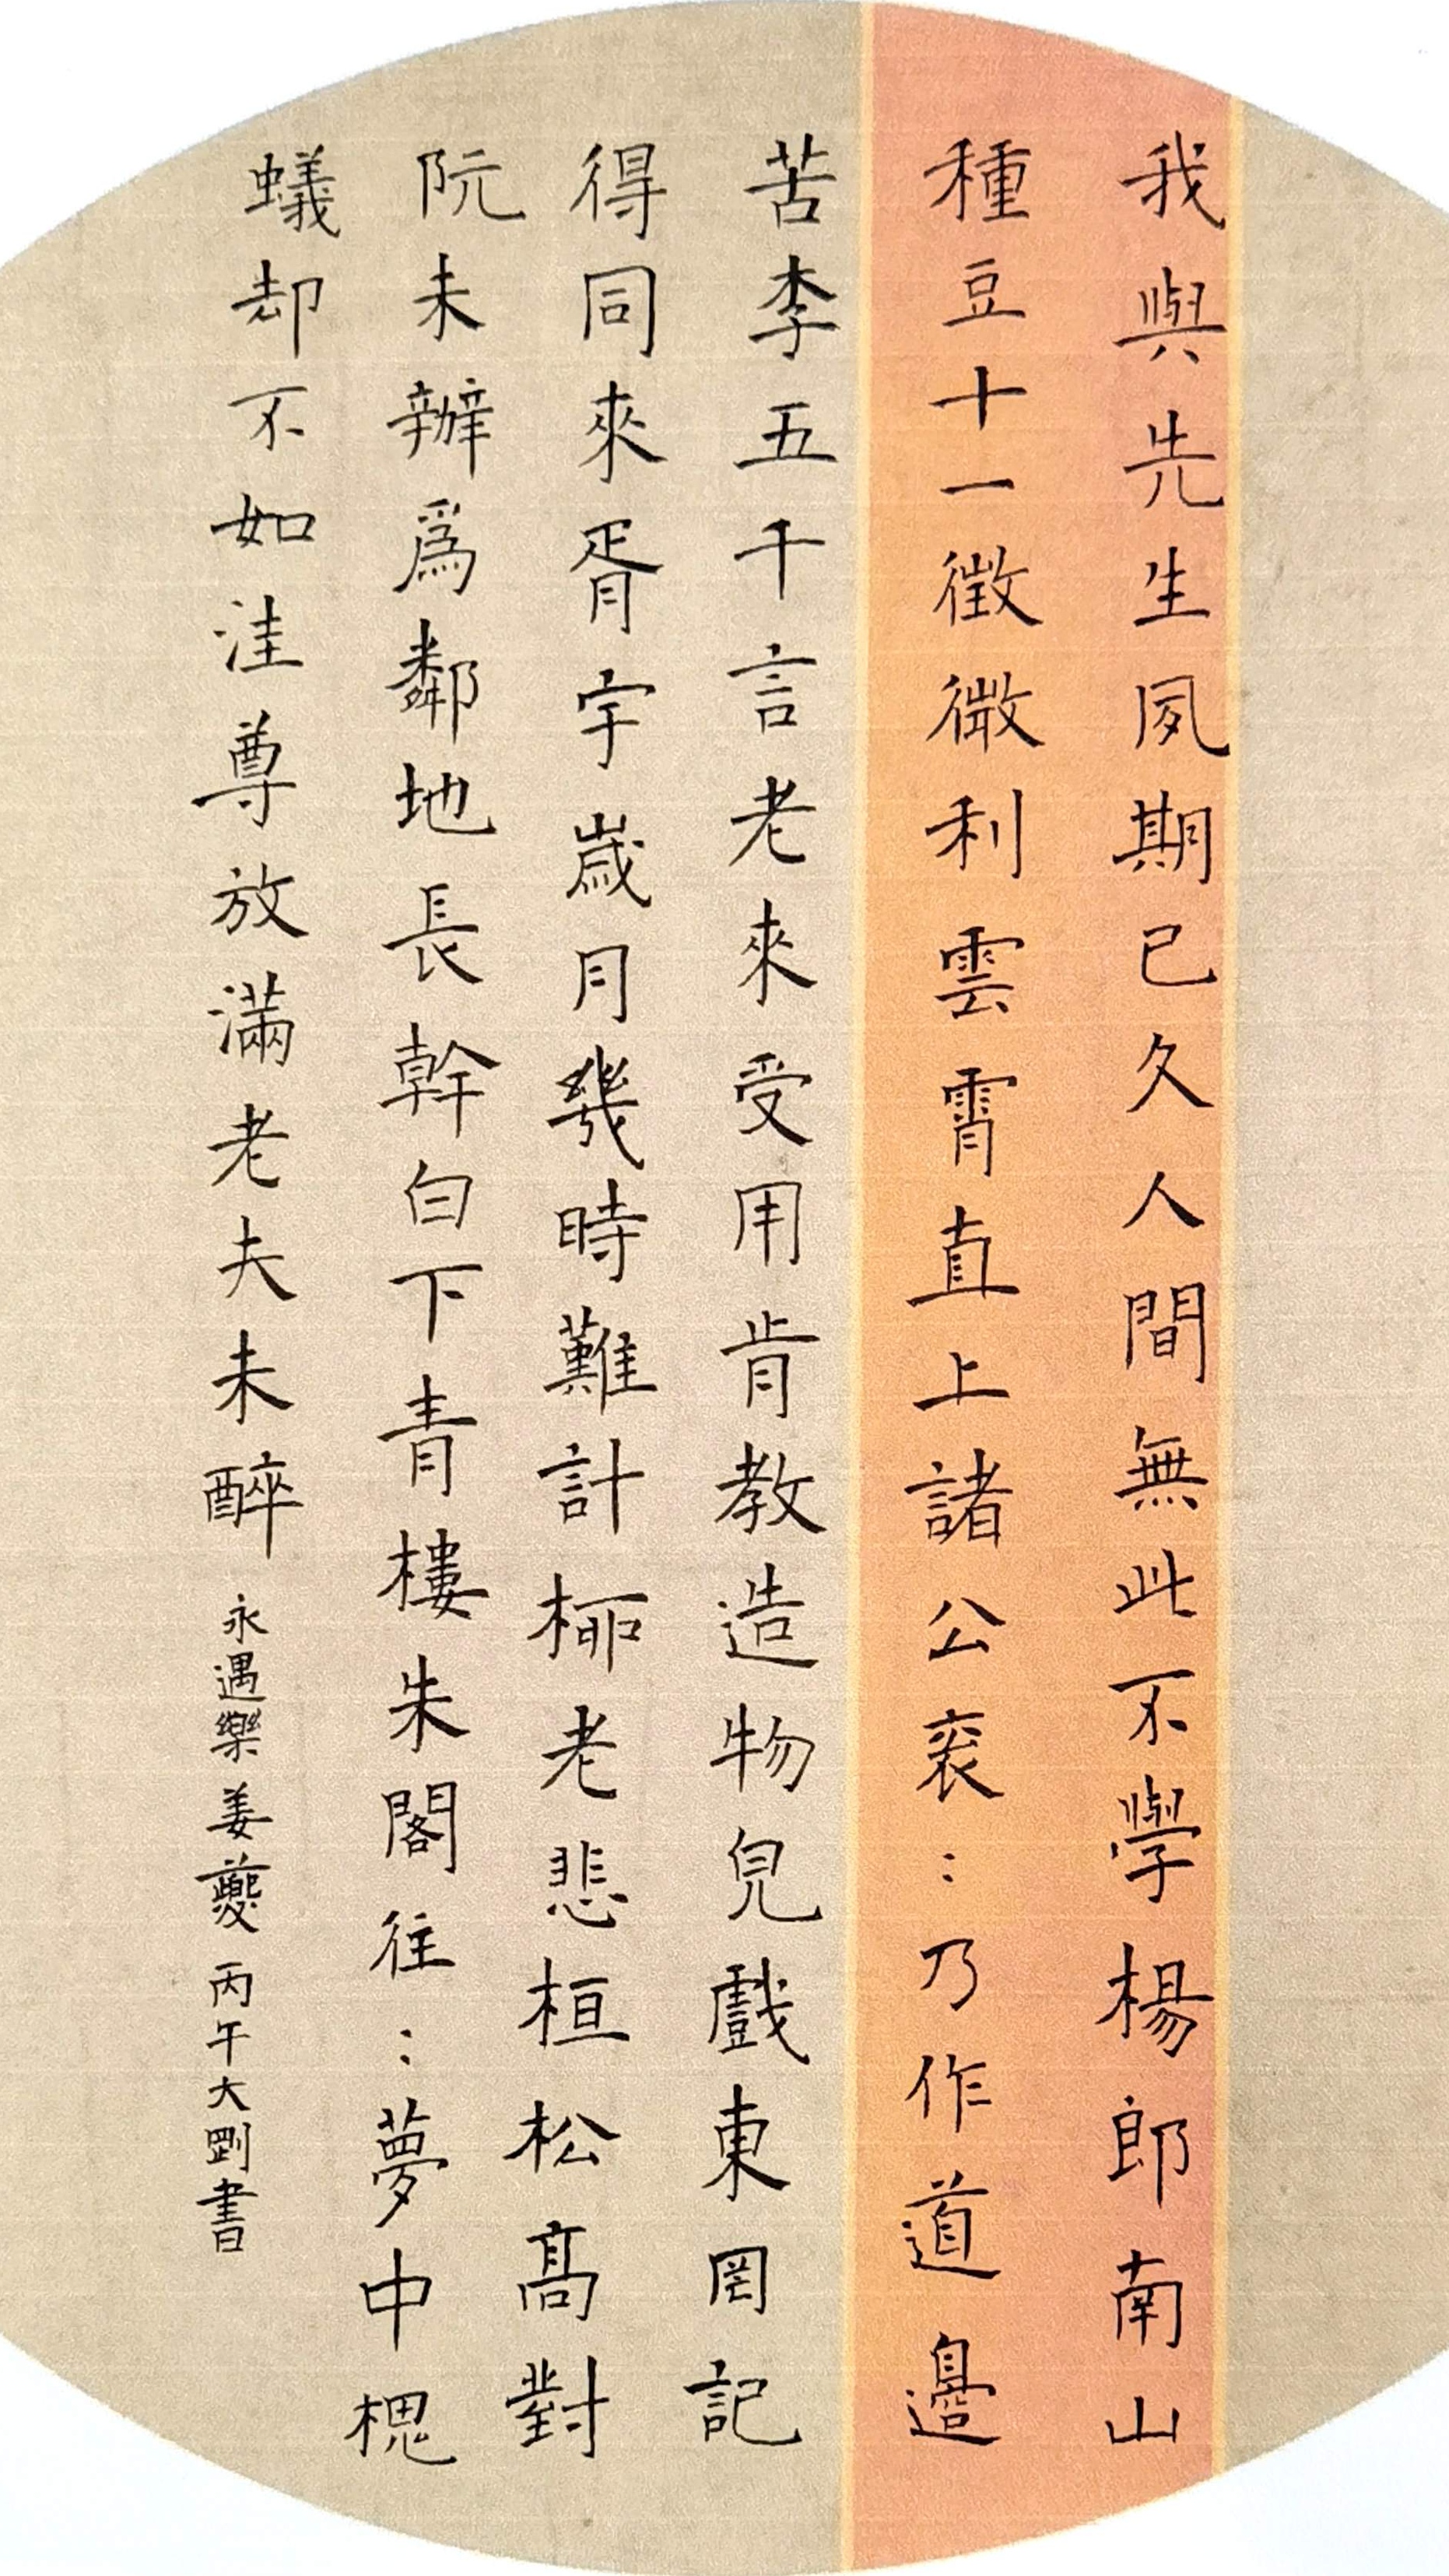 我與先生夙期已久人間無此不學楊郎南山
種豆十一徵微利雲霄直上諸公衮：乃作道邊
苦李五千言老來受用肯教造物兒戲東罔記
得同來胥宇歲月幾時難計栁老悲桓松高對
阮未辦爲鄰地長幹白下青樓朱閣往：夢中槐
蟻却不如洼尊放滿老夫未醉 永遇樂姜夔丙午大剛書